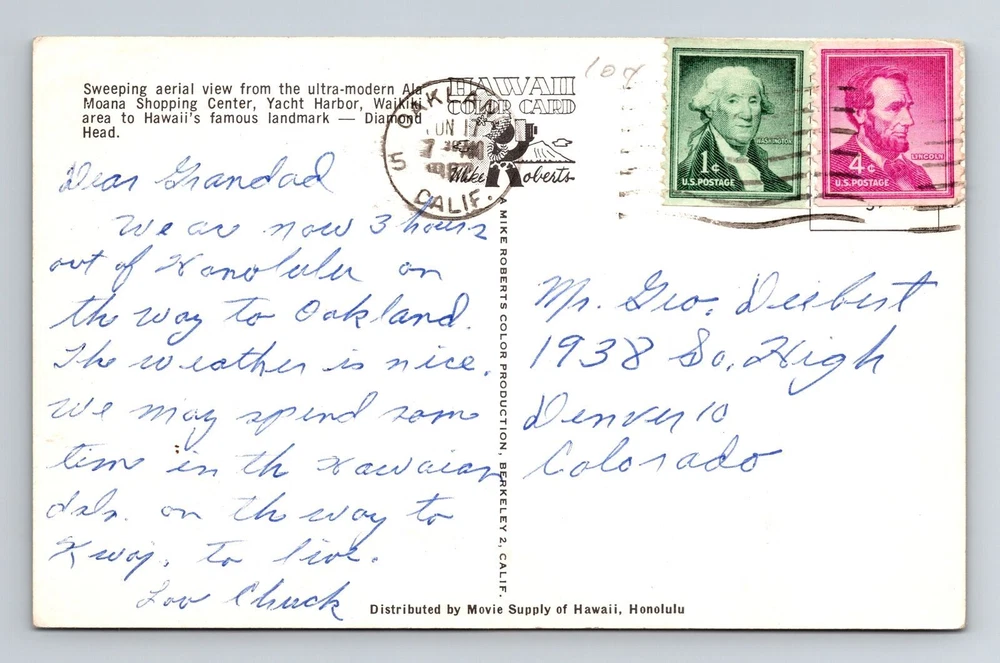 Sweeping aerial view from the ultra-modern Ala
Moana Shopping Center, Yacht Harbor, Waikiki
area to Hawaii's famous landmark — Diamond
Head.
HAWAII
COLOR CARD
Mike Roberts
OAKLAND
JUN 17
5
CALIF.
107
1¢
WASHINGTON
U.S. POSTAGE
4¢
LINCOLN
U.S. POSTAGE
Dear Grandad
We are now 3 hours
out of Honolulu on
the way to Oakland.
The weather is nice.
We may spend some
time in the Hawaiian
Isls. on the way to
Kwaj. to live.
Lov Chuck
A MIKE ROBERTS COLOR PRODUCTION, BERKELEY 2, CALIF.
Mr. Geo. Deibert
1938 So. High
Denver 10
Colorado
Distributed by Movie Supply of Hawaii, Honolulu